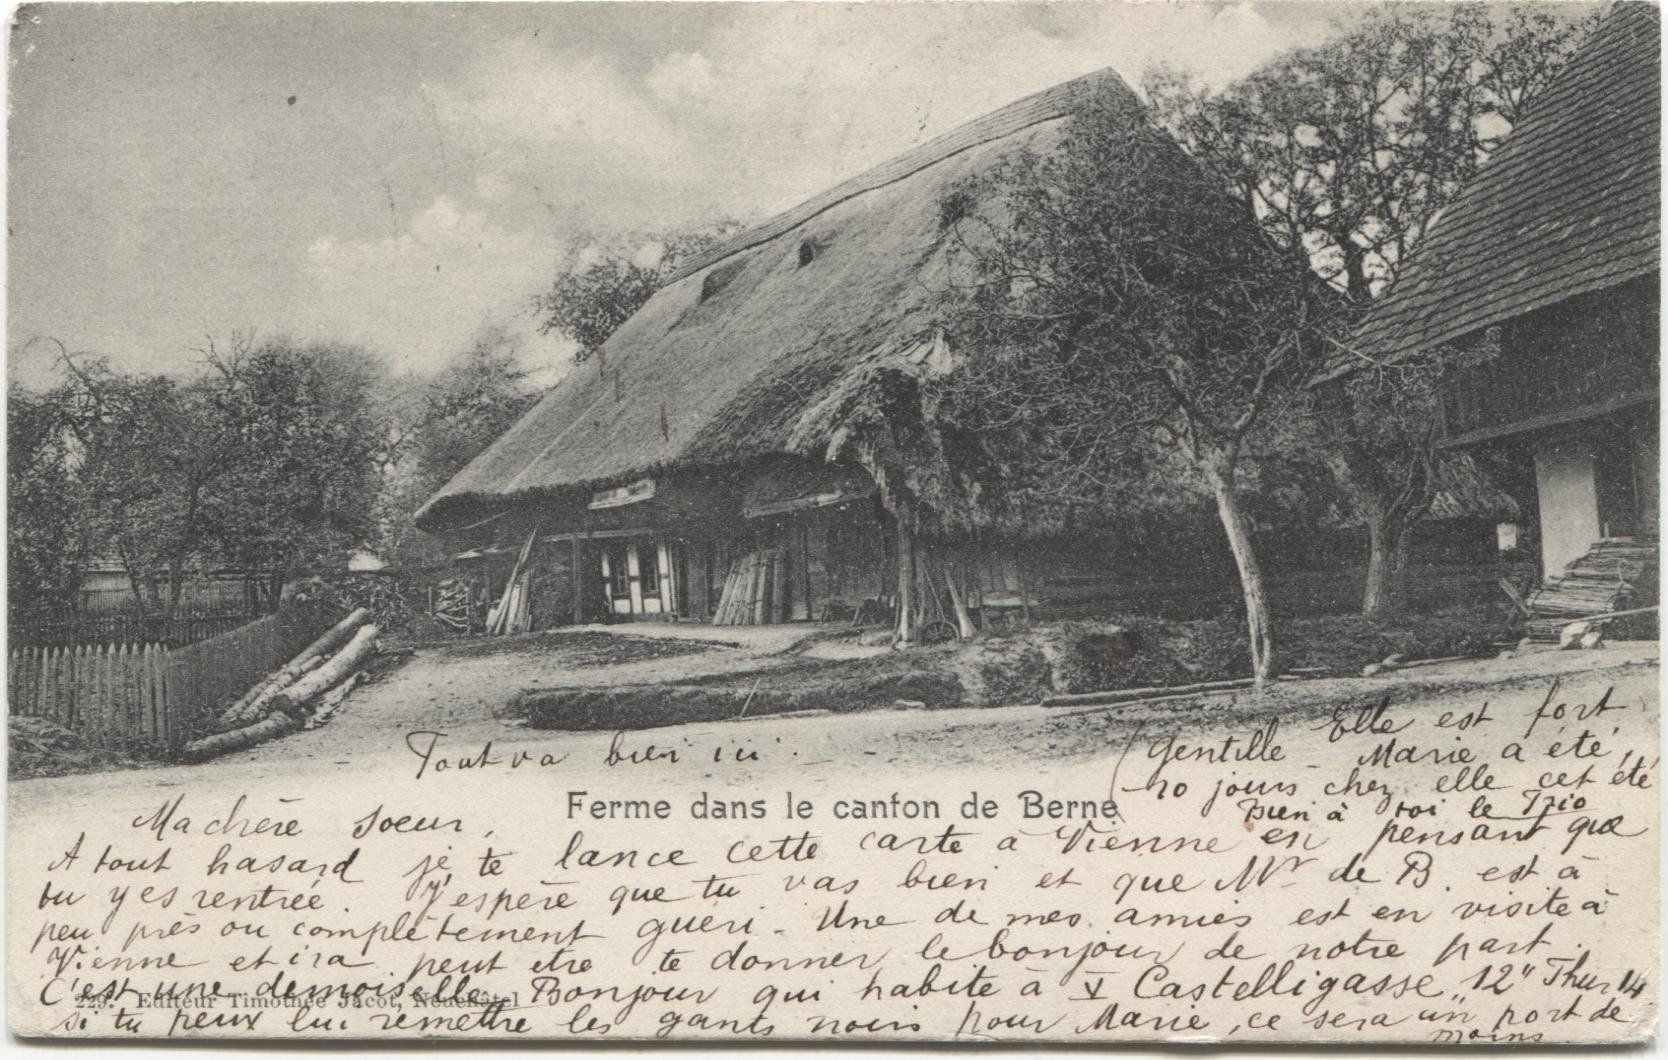 Tout va bien ici.
Elle est fort
gentille _ Marie a été,
10 jours chez elle cet été
Bien à toi le Trio
Ferme dans le canton de Berne
Ma chère soeur,
A tout hasard je te lance cette carte à Vienne en pensant que
tu y es rentrée. J'espère que tu vas bien et que Mr de B. est à
peu près ou complètement guéri - Une de mes amies est en visite à
Vienne et ira peut etre te donner le bonjour de notre part.
C'est une demoiselle Bonjour qui habite à V Castelligasse "12" Thur 14
229. Editeur Timothée Jacot, Neuchâtel
si tu peux lui remettre les gants noirs pour Marie, ce sera un port de
moins.